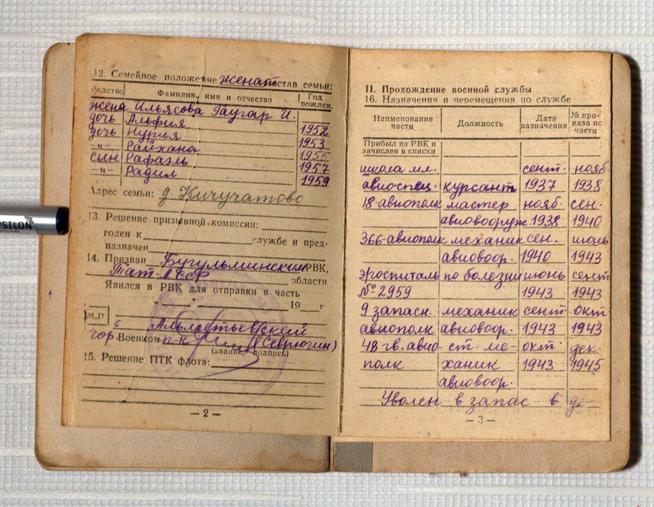 PSILON
12. Семейное положение женат состав семьи:
Фамилия, имя и отчество
Год рожден.
жена Ильясова Гаухар И.
дочь Альфия 1952
дочь Нурия 1953
-"- Райхана 1955
сын Рафаэль 1957
-"- Радил 1959
Адрес семьи: д. Кичучатово
13. Решение призывной комиссии:
годен к
службе и пред-
назначен
14. Призван Бугульминским РВК,
Тат. АССР области
Явился в РВК для отправки в часть
19 г.
М.П.
гор Военком п-к (Севрюгин)
(звание, подпись)
15. Решение ПТК флота:
— 2 —
II. Прохождение военной службы
16. Назначения и перемещения по службе
Наименование части
Должность
Дата назначения
№ при-каза по части
Прибыл из РВК и
зачислен в списки
школа мл. сент. нояб
авиоспец. курсант 1937 1938
18-авиополк мастер нояб. сен.
авиовооруж 1938 1940
366-авиополк механик сен. июнь
авиовоор. 1940 1943
эвоспиталь по болезни июнь сент
№ 2959 1943 1943
9 запасн. механик сент. окт
авиополк авиовоор. 1943 1943
48 гв. авио- ст. ме- окт. дек
полк ханик 1943 1945
авиовоор.
Уволен в запас в
— 3 —